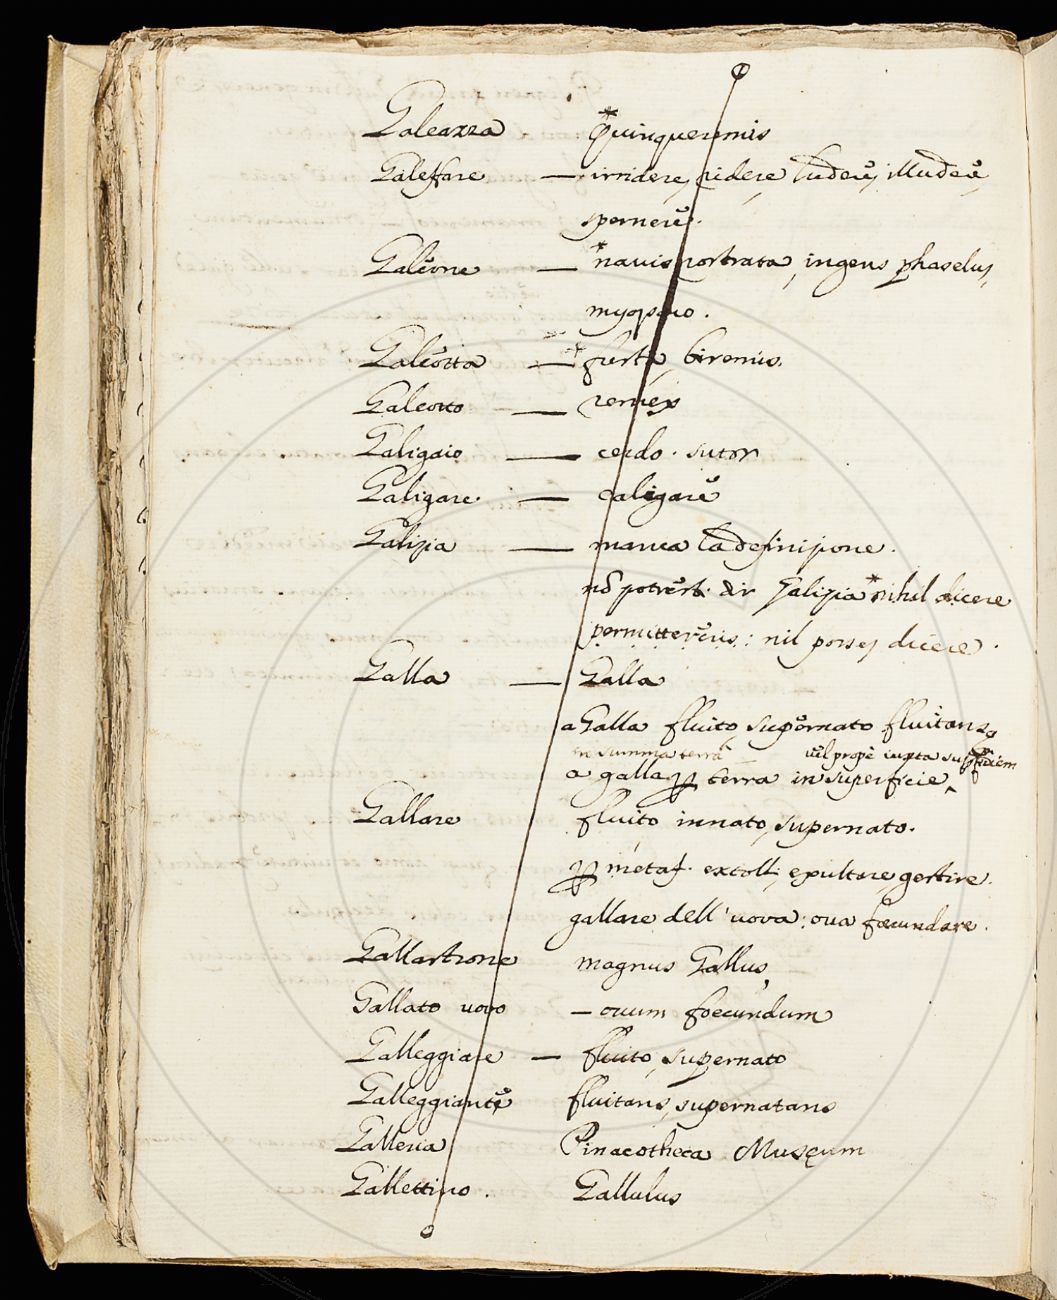 Galeazza *Quinqueremis
Galefare — irridere, ridere ludere, illudere,
spernere.
Galeone — *navis rostrata, ingens phaselus,
myoparo.
Galeotta — *fusta, biremis.
Galeotto — remex
Galigaio — cerdo. sutor
Galigare. — caligare
Galizia — manca la definizione.
nõ potrest. dir Galizia *nihil dicere
permitteretis: nil posses dicere.
Galla — Galla
a Galla fluito, supernato fluitans
in summa terra vel propè iuxta superficiem
a galla ꝑ terra in superficie
Gallare fluito innato, supernato.
ꝑ metaf. extolli, exultare, gestire.
gallare dell'uova: ova foecundare.
Gallastrone magnus Gallus
Gallato uovo — ovum foecundum
Galleggiare — fluito, supernato
Galleggiante fluitans, supernatans
Galleria Pinacotheca Museum
Gallettino. Gallulus